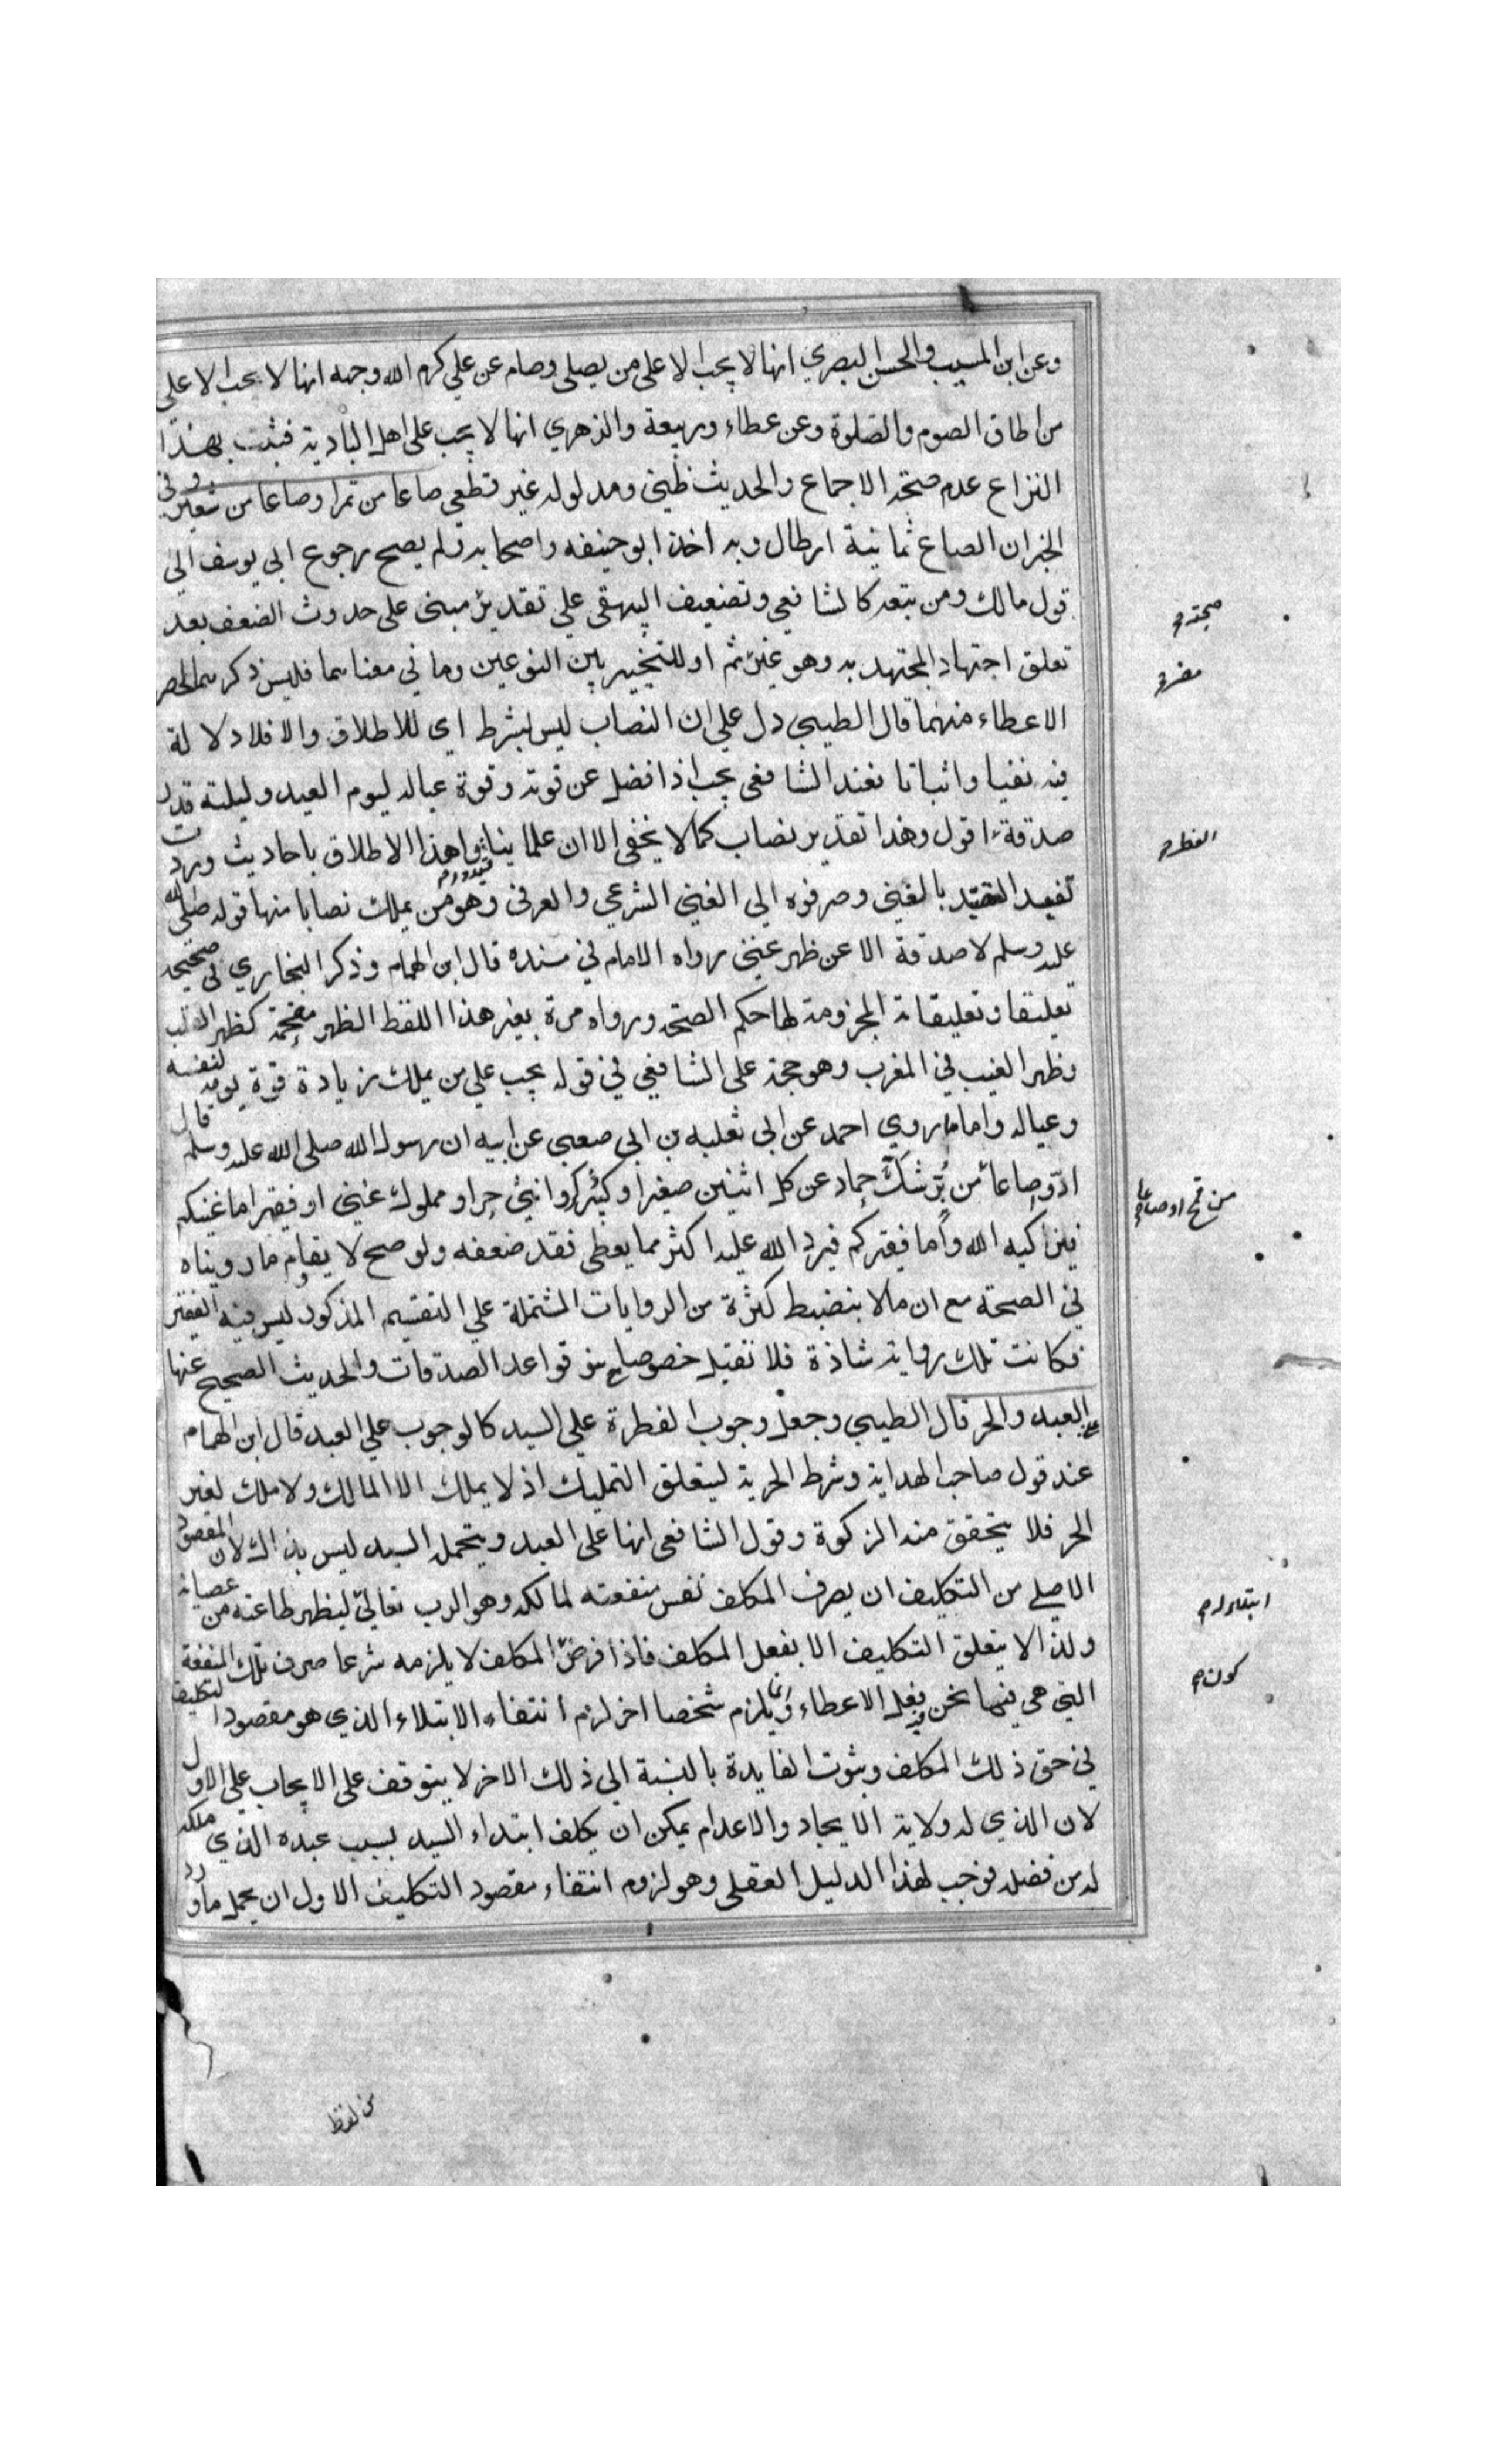 وعن ابن المسيب والحسن البصري انها لا يجب الا على من يصلى وصام عن علي كرم الله وجهه انها لا يجب الا على
من اطاق الصوم والصلوة وعن عطاء وربيعة والزهري انها لا يجب على اهل البادية فثبت بهذا
النزاع عدم صحة الاجماع والحديث ظني ومدلوله غير قطعي صاعا من تمر او صاعا من شعير وفي
الخبر ان الصاع ثمانية ارطال وبه اخذ ابو حنيفه واصحابه ولم يصح رجوع ابي يوسف الى
قول مالك ومن تبعه كالشافعي وتضعيف البيهقي علي تقدير مبنى على حدوث الضعف بعد
تعلق اجتهاد المجتهد به وهو غير ثم او للتخيير بين النوعين وما في معناهما فليس ذكرهما لحصر
الاعطاء منهما قال الطيبي دل علي ان النصاب ليس بشرط اى للاطلاق والا فلا دلالة
فيه نفيا واثباتا فعند الشافعى يجب اذا فضل عن قوته وقوة عياله ليوم العيد وليلته قدر
صدقة اقول وهذا تقدير نصاب كما لا يخفى الا ان علماينا قيدوا هذا الاطلاق باحاديث وردت
تفيد التقييد بالغني وصرفوه الى الغني الشرعي والعرفى وهو من يملك نصابا منها قوله صلى الله
عليه وسلم لا صدقة الا عن ظهر غنى رواه الامام في مسنده قال ابن الهمام وذكر البخاري في صحيحه
تعليقا وتعليقاته المجزومة لها حكم الصحة ورواه مرة بغير هذا اللفظ الظهر مقحمة كظهر القلب
وظهر الغيب في المغرب وهو حجة على الشافعي في قوله يجب علي من يملك زيادة قوة يومه لنفسه
وعياله واما ما روي احمد عن ابى ثعلبه بن ابي صعبى عن ابيه ان رسول الله صلى الله عليه وسلم قال
ادّوا صاعا من بُرّ شكّ حماد عن كل اثنين صغيرا وكبيرا ذكر وانثي حر او مملوك غني او فقير اما غنيكم
فيزكيه الله وأما فقيركم فيرد الله عليه اكثر مما يعطى فقد ضعفه ولو صح لا يقاوم ما رويناه
في الصحة مع ان ما لا ينضبط كثرة من الروايات المشتملة علي التقسيم المذكور ليس فيه الفقير
فكانت تلك رواية شاذة فلا تقبل خصوصا مع نبو قواعد الصدقات والحديث الصحيح عنها
على العبد والحر قال الطيبي وجعل وجوب الفطرة على السيد كالوجوب علي العبد قال ابن الهمام
عند قول صاحب الهداية وشرط الحرية ليتعلق التمليك اذ لا يملك الا المالك ولا ملك لغير
الحر فلا يتحقق منه الزكوة وقول الشافعى انها على العبد ويتحمله السيد ليس بذاك لان المقصود
الاصلي من التكليف ان يصرف المكلف نفس منفعته لمالكه وهو الرب تعالى ليظهر طاعته من عصيانه
ولذا لا يتعلق التكليف الا بفعل المكلف فاذا فرض المكلف لا يلزمه شرعا صرف تلك المنفعة
التي هي فيما نحن فيه فعل الاعطاء وانما يلزم شخصا اخر لزم انتفاء الابتلاء الذي هو مقصود التكليف
في حق ذلك المكلف وبثوت الفايدة بالنسبة الى ذلك الاخر لا يتوقف على الايجاب علي الاول
لان الذي له ولاية الايجاد والاعدام يمكن ان يكلف ابتداء السيد بسبب عبده الذي ملكه
له من فضله فوجب لهذا الدليل العقلى وهو لزوم انتفاء مقصود التكليف الاول ان يحمل ما ورد
صحته م
الفطر م
من قمح او صاعا م
ابتداء له م
كون م
من لفظ